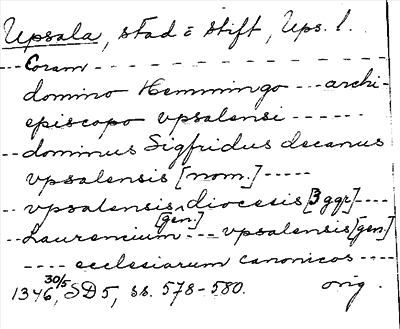 Upsala, stad = stift, Ups. l.
--- Coram ---
domino Hemmingo --- archi-
episcopo vpsalensi ---
-- dominus Sigfridus decanus
vpsalensis [nom.] ---
-- vpsalensis diocesis [3 ggr] ---
[gen.]
-- Laurencium --- vpsalensis [gen.]
---- ecclesiarum canonicos ----
1346 30/5, SD 5, ss. 578-580. orig.